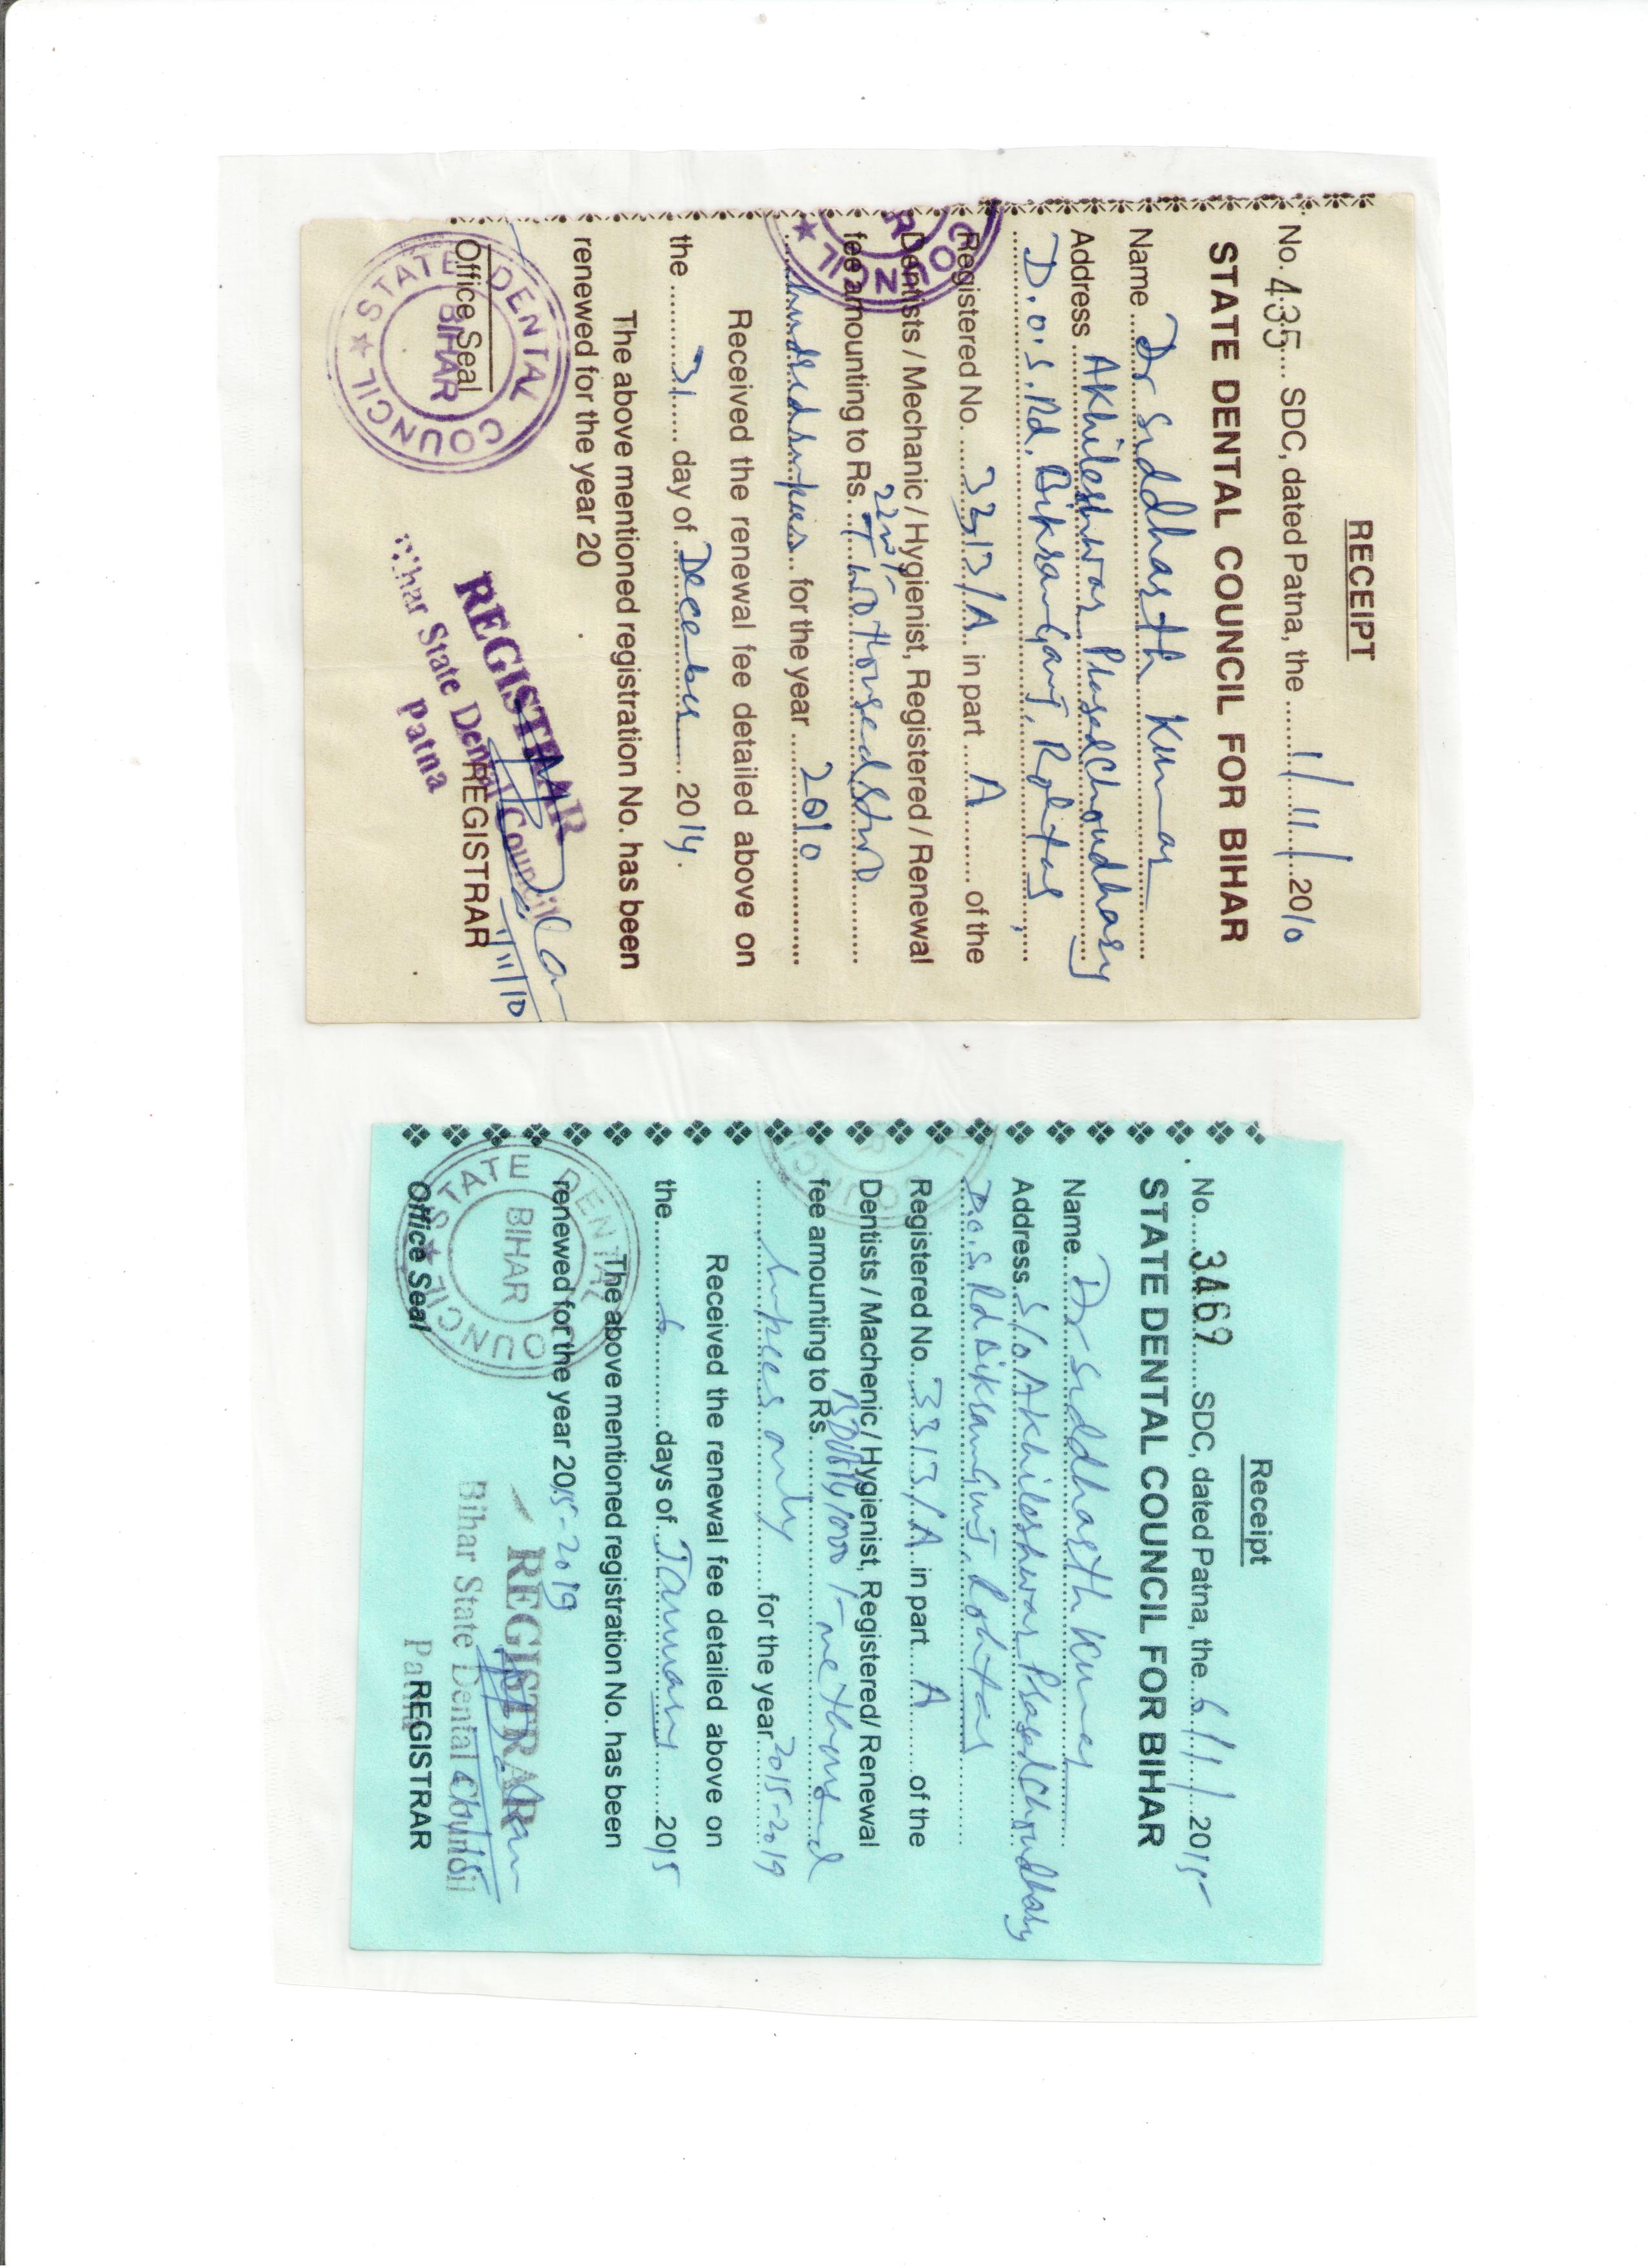 RECEIPT
No. 435 SDC, dated Patna, the 1/11/2010
STATE DENTAL COUNCIL FOR BIHAR
Name Dr Siddharth Kumar
Address Akhileshwar Prasad Choudhary
D.O.S. Rd. Bikramganj, Rohtas
Registered No. 3313/A in part A of the
Dentists / Mechanic / Hygienist, Registered / Renewal
fee amounting to Rs.
for the year 2010
Received the renewal fee detailed above on
the 31 day of December 2014.
The above mentioned registration No. has been
renewed for the year 20
Office Seal
STATE DENTAL COUNCIL
BIHAR
REGISTRAR
Bihar State Dental Council
Patna
REGISTRAR
1/11/10
Receipt
No. 3469 SDC, dated Patna, the 6/1/2015
STATE DENTAL COUNCIL FOR BIHAR
Name Dr Siddharth Kumar
Address S/o Akhileshwar Prasad Choudhary
D.O.S. Rd Bikramganj, Rohtas
Registered No. 3313/A in part A of the
Dentists / Machenic / Hygienist, Registered/ Renewal
fee amounting to Rs.
rupees only for the year 2015-2019
Received the renewal fee detailed above on
the 6 days of January 2015
The above mentioned registration No. has been
renewed for the year 2015-2019
Office Seal
STATE DENTAL COUNCIL
BIHAR
REGISTRAR
Bihar State Dental Council
Patna
REGISTRAR